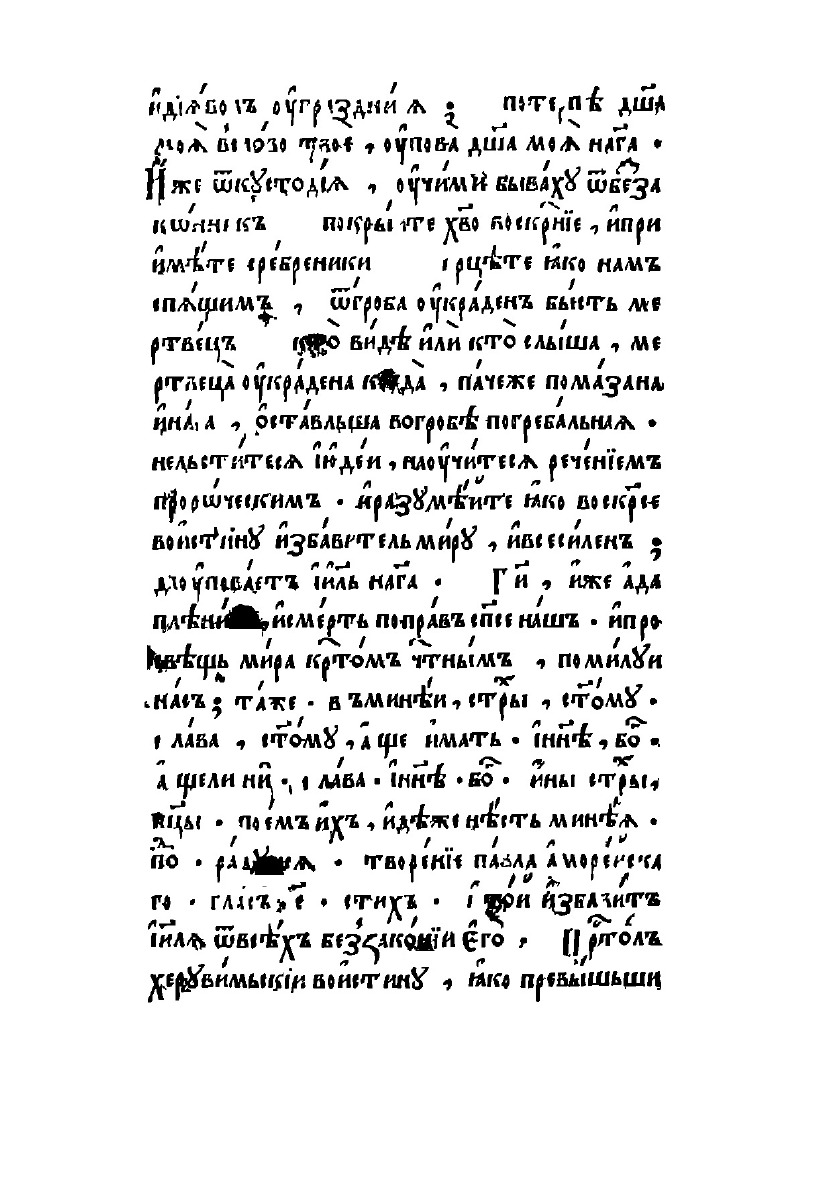 и҆дїѧ́волъ ᲂу҆праздни́сѧ : поте́рпѣ дш҃а
моѧ̀ во сло́во твоѐ , ᲂу҆пова̀ дш҃а моѧ̀ на г҃а .
И҆́же ѿ кꙋстоді́ѧ , ᲂу҆чи́ми быва́хꙋ ѿ беза
ко́нникъ покры́йте хв҃о воскрн҃їе , и҆ при
и҆мѣ́те сре́бреники и҆ рцѣ́те ꙗ҆́ко намъ
спѧ́щимъ , ѿ гроба ᲂу҆кра́денъ бы́сть ме
ртве́цъ кто̀ ви́дѣ и҆лѝ кто̀ слы́ша , ме
ртвеца̀ ᲂу҆кра́дена когда̀ , па́че же пома́зана
и҆ на́га , ѡ҆ста́вльша во гробѣ погреба́льнаѧ .
не льсти́тесѧ і҆ю҆де́и , наᲂу҆чи́тесѧ рече́нїемъ
проро́ческимъ . и҆ разꙋмѣ́йте ꙗ҆́ко воскр҃се
вои́стиннꙋ и҆зба́витель ми́рꙋ , и҆ всеси́ленъ ;
да ᲂу҆пова́етъ і҆и҃ль на г҃а . Г҃и , и҆́же а҆́да
плѣни́въ , и҆ сме́рть попра́въ сп҃се на́шъ . и҆ про
свѣ́щь ми́ра крⷭ҇то́мъ чⷭ҇тны́мъ , поми́лꙋи
на́съ ; та́же . в ъминѣ́и , стⷯры , ст҃о́мꙋ .
слава , ст҃о́мꙋ , а҆ще и҆мать . і҆ нн҃ѣ , бо҃ .
а҆ще ли ни̑ . слава . і҆ нн҃ѣ . бо҃ . и҆́ны стⷯры ,
бц҃ы . пое́мъ и҆́хъ , и҆дѣ́же нѣ́сть минѣ́ѧ .
поⷣ . ра́дꙋйсѧ . творе́нїе па́вла а҆море́йска
го . гла́съ , є҃ . стихъ . і҆ то́й и҆зба́витъ
і҆и҃лѧ ѿ всѣ́хъ беззако́нїи є҆го̀ , Пр҃то́лъ
херꙋви́мьскїи вои́стинꙋ , ꙗ҆́ко превы́шьши